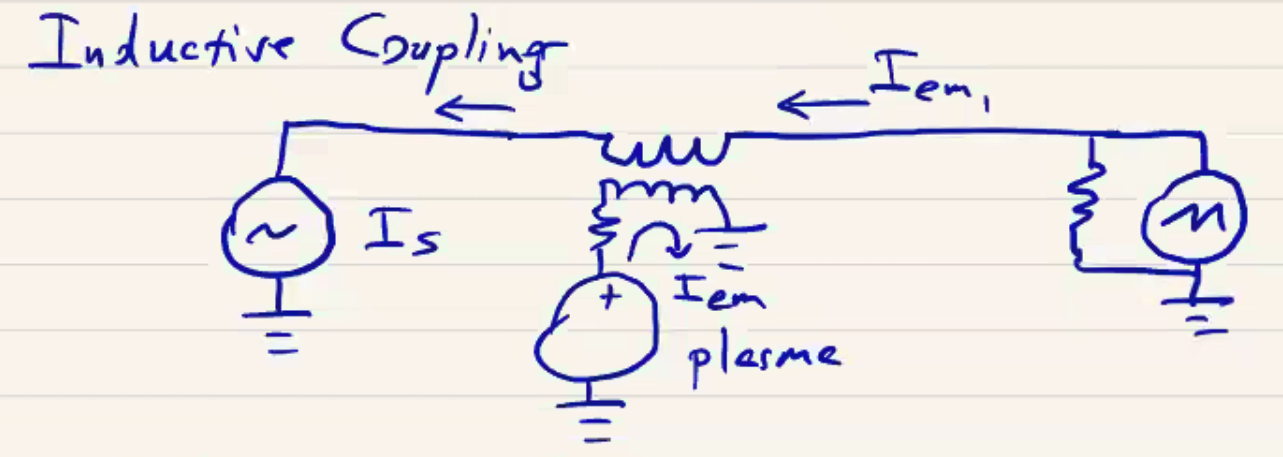 Inductive Coupling
Iem,
Is
+
Iem
plasma